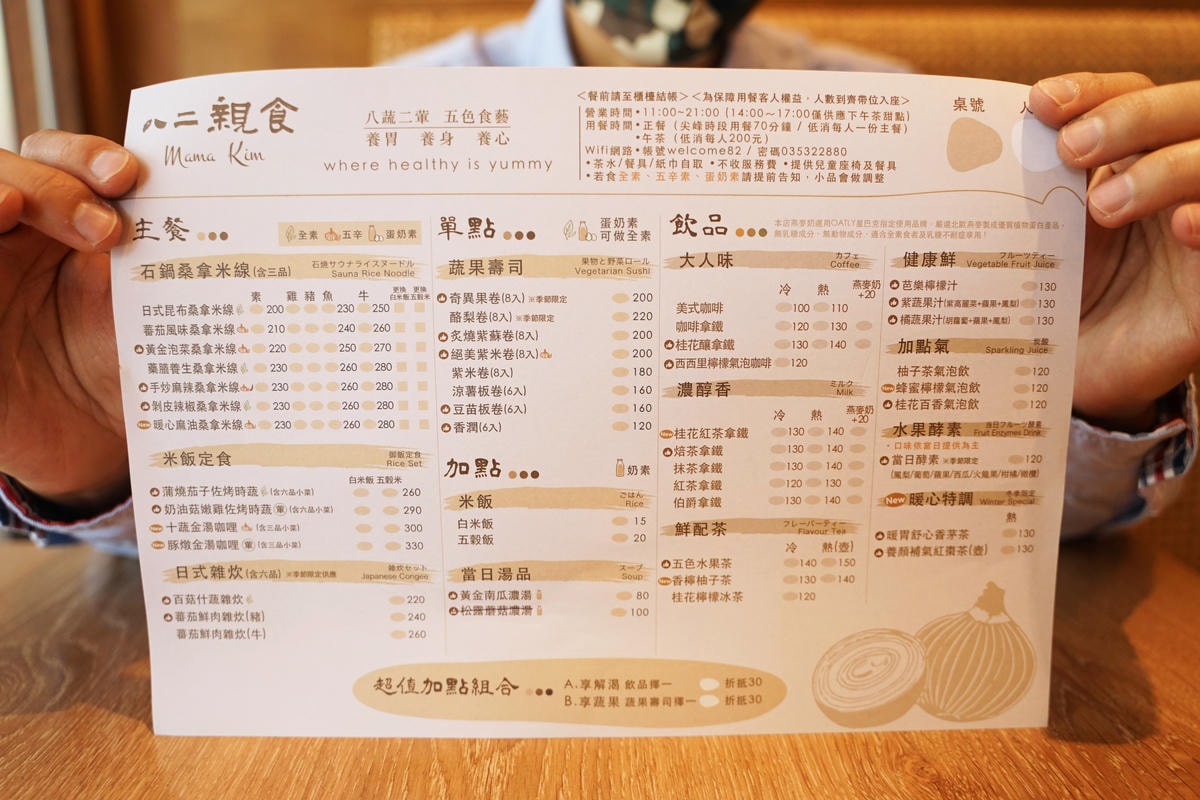 八二親食
Mama Kim
八蔬二葷 五色食藝
養胃 養身 養心
where healthy is yummy
<餐前請至櫃檯結帳> <為保障用餐客人權益,人數到齊帶位入座>
營業時間•11:00~21:00 (14:00~17:00僅供應下午茶甜點)
用餐時間•正餐 (尖峰時段用餐70分鐘 / 低消每人一份主餐)
•午茶 (低消每人200元)
Wifi網路•帳號welcome82 / 密碼035322880
•茶水/餐具/紙巾自取 •不收服務費 •提供兒童座椅及餐具
•若食全素、五辛素、蛋奶素請提前告知,小品會做調整
桌號
人
主餐
全素 五辛 蛋奶素
石鍋桑拿米線(含三品) 石燒サウナライスヌードル
Sauna Rice Noodle
素 雞 豬 魚 牛 更換白米飯 更換五穀米
日式昆布桑拿米線 200 230 250
蕃茄風味桑拿米線 210 240 260
黃金泡菜桑拿米線 220 250 270
藥膳養生桑拿米線 230 260 280
手炒麻辣桑拿米線 230 260 280
剝皮辣椒桑拿米線 230 260 280
New 暖心麻油桑拿米線 230 260 280
米飯定食 御飯定食
Rice Set
白米飯 五穀米
蒲燒茄子佐烤時蔬 (含六品小菜) 260
奶油菇嫩雞佐烤時蔬 葷 (含六品小菜) 290
New 十蔬金湯咖哩 (含三品小菜) 300
New 豚燉金湯咖哩 葷 (含三品小菜) 330
日式雜炊(含六品) ※季節限定供應 雜炊セット
Japanese Congee
百菇什蔬雜炊 220
蕃茄鮮肉雜炊(豬) 240
蕃茄鮮肉雜炊(牛) 260
單點
蛋奶素
可做全素
蔬果壽司 果物と野菜ロール
Vegetarian Sushi
奇異果卷(8入) ※季節限定 200
酪梨卷(8入) ※季節限定 220
炙燒紫蘇卷(8入) 200
絕美紫米卷(8入) 200
紫米卷(8入) 180
涼薯板卷(6入) 160
豆苗板卷(6入) 160
香潤(6入) 120
加點
奶素
米飯 ごはん
Rice
白米飯 15
五穀飯 20
當日湯品 スープ
Soup
黃金南瓜濃湯 80
松露蘑菇濃湯 100
飲品
本店燕麥奶選用OATLY星巴克指定使用品牌,嚴選北歐燕麥製成優質植物蛋白產品,
無乳糖成分、無動物成分,適合全素食者及乳糖不耐症享用!
大人味 カフェ
Coffee
冷 熱 燕麥奶+20
美式咖啡 100 110
咖啡拿鐵 120 130
桂花釀拿鐵 130 140
西西里檸檬氣泡咖啡 120
濃醇香 ミルク
Milk
冷 熱 燕麥奶+20
New 桂花紅茶拿鐵 130 140
焙茶拿鐵 130 140
抹茶拿鐵 130 140
紅茶拿鐵 120 130
伯爵拿鐵 130 140
鮮配茶 フレーバーティー
Flavour Tea
冷 熱(壺)
五色水果茶 140 150
New 香檸柚子茶 130 140
桂花檸檬冰茶 120
健康鮮 フルーツティー
Vegetable Fruit Juice
芭樂檸檬汁 130
紫蔬果汁(紫高麗菜+蘋果+鳳梨) 130
橘蔬果汁(胡蘿蔔+蘋果+鳳梨) 130
加點氣 炭酸
Sparkling Juice
柚子茶氣泡飲 120
New 蜂蜜檸檬氣泡飲 120
桂花百香氣泡飲 120
水果酵素 当日フルーツ酵素
Fruit Enzymes Drink
•口味依當日提供為主
當日酵素 ※季節限定 120
(鳳梨/葡萄/蘋果/西瓜/火龍果/柑橘/橄欖)
New 暖心特調 冬季限定
Winter Special
熱
暖胃舒心香茅茶 130
養顏補氣紅棗茶(壺) 130
超值加點組合
A.享解渴 飲品擇一 折抵30
B.享蔬果 蔬果壽司擇一 折抵30